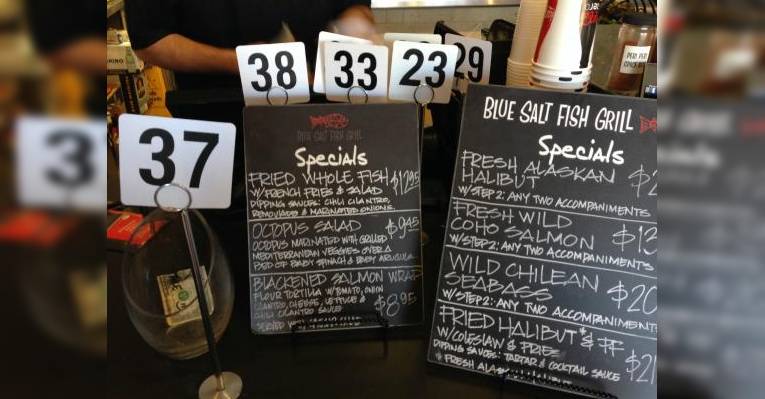 38
33
23
29
37
BLUE SALT FISH GRILL
Specials
FRIED WHOLE FISH $12.95
W/FRENCH FRIES & SALAD
DIPPING SAUCES: CHILI CILANTRO,
REMOULADE & MARINATED ONIONS.
OCTOPUS SALAD $9.95
OCTOPUS MARINATED WITH GRILLED
MEDITERRANEAN VEGGIES OVER A
BED OF BABY SPINACH & BABY ARUGULA
BLACKENED SALMON WRAP
FLOUR TORTILLA W/TOMATO, ONION
CILANTRO, CHEESE, LETTUCE &
CHILI CILANTRO SAUCE $8.95
SERVED
BLUE SALT FISH GRILL
Specials
FRESH ALASKAN
HALIBUT
W/STEP 2: ANY TWO ACCOMPANIMENTS
FRESH WILD
COHO SALMON $13
W/STEP 2: ANY TWO ACCOMPANIMENTS
WILD CHILEAN
SEABASS $20
W/STEP 2: ANY TWO ACCOMPANIMENTS
FRIED HALIBUT* & FF
W/COLESLAW & FRIES $21
DIPPING SAUCES: TARTAR & COCKTAIL SAUCE
* FRESH
PERI PERI